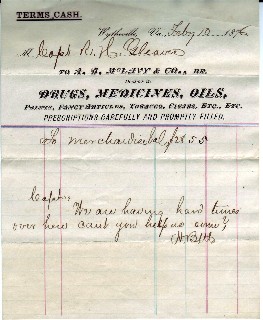 TERMS CASH.
Wytheville, Va., Feby 12 187
M Capt. R. H. Gleaves
TO A. G. McGAVY & CO., DR.
DRUGS, MEDICINES, OILS,
PAINTS, FANCY ARTICLES, TOBACCO, CIGARS, ETC., ETC.
PRESCRIPTIONS CAREFULLY AND PROMPTLY FILLED.
To Merchandise bal 55
Capt
We are having hard times
over here cant you help us some?